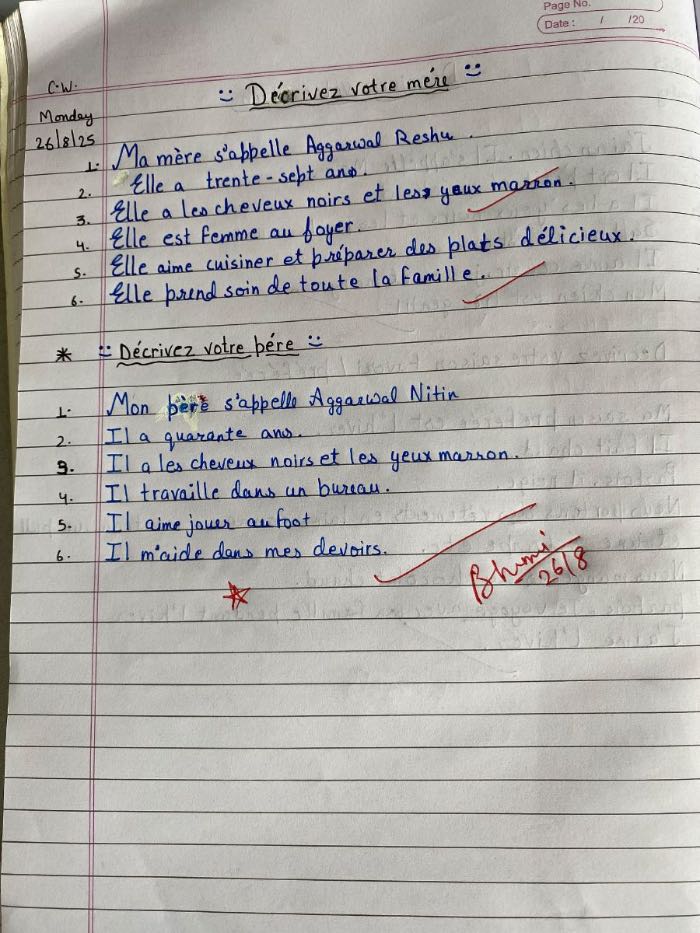 Page No.
Date : / /20
C.W.
Décrivez votre mére
Monday
26/8/25
1. Ma mère s'appelle Aggarwal Reshu.
2. Elle a trente-sept ans.
3. Elle a les cheveux noirs et les yeux marron.
4. Elle est femme au foyer.
5. Elle aime cuisiner et préparer des plats délicieux.
6. Elle prend soin de toute la famille.
* Décrivez votre pére
1. Mon père s'appelle Aggarwal Nitin
2. Il a quarante ans.
3. Il a les cheveux noirs et les yeux marron.
4. Il travaille dans un bureau.
5. Il aime jouer au foot
6. Il m'aide dans mes devoirs.
Bhumi
26/8